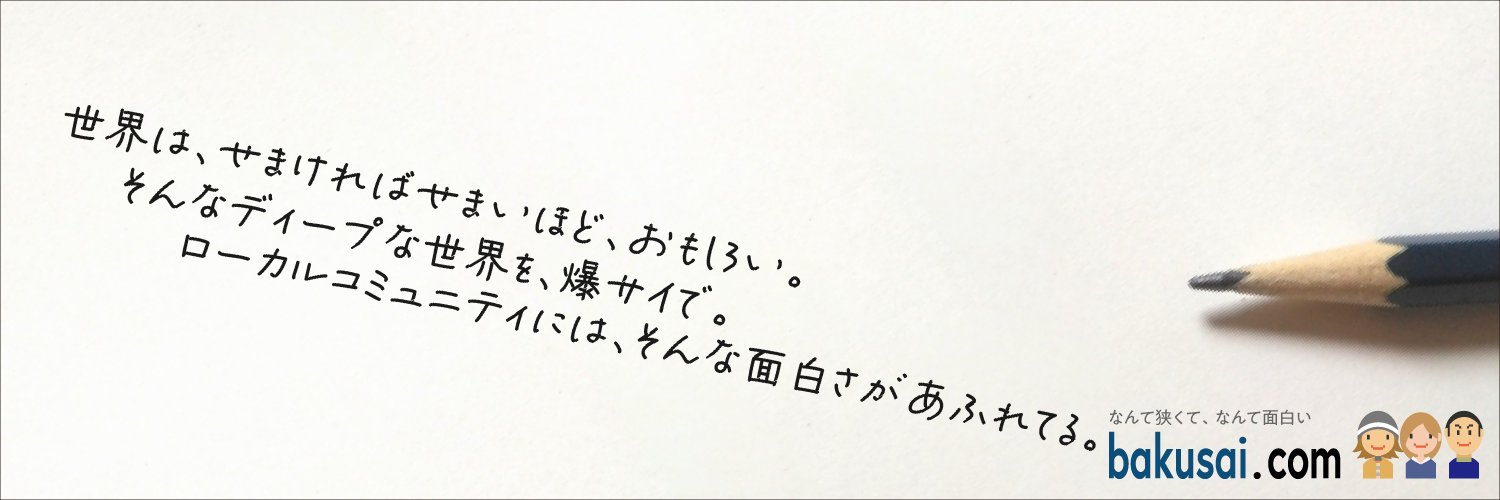 世界は、せまければせまいほど、おもしろい。
そんなディープな世界を、爆サイで。
ローカルコミュニティには、そんな面白さがあふれてる。
なんて狭くて、なんて面白い
bakusai.com